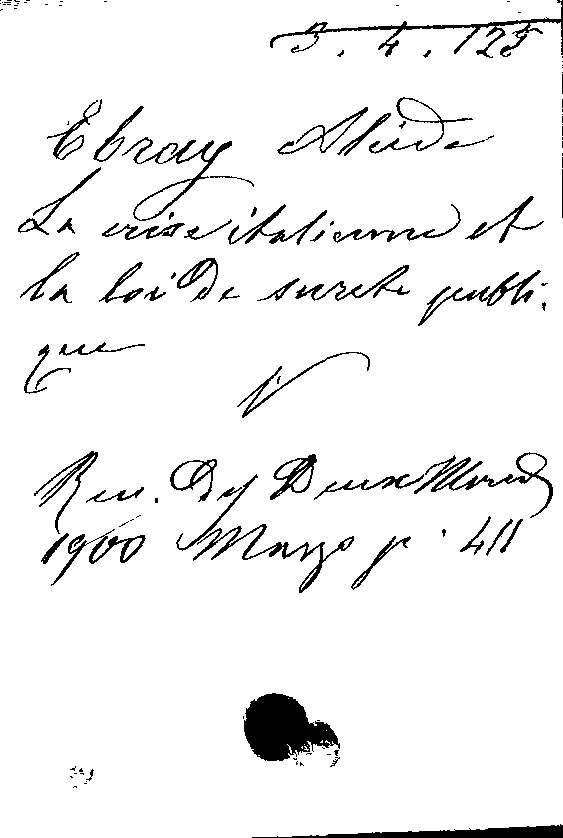 3.4.125
Ebray Alcide
La crise italienne et
la loi de sureté publi-
que
V
Rev. Des Deux Mond
1900 Marzo p. 411